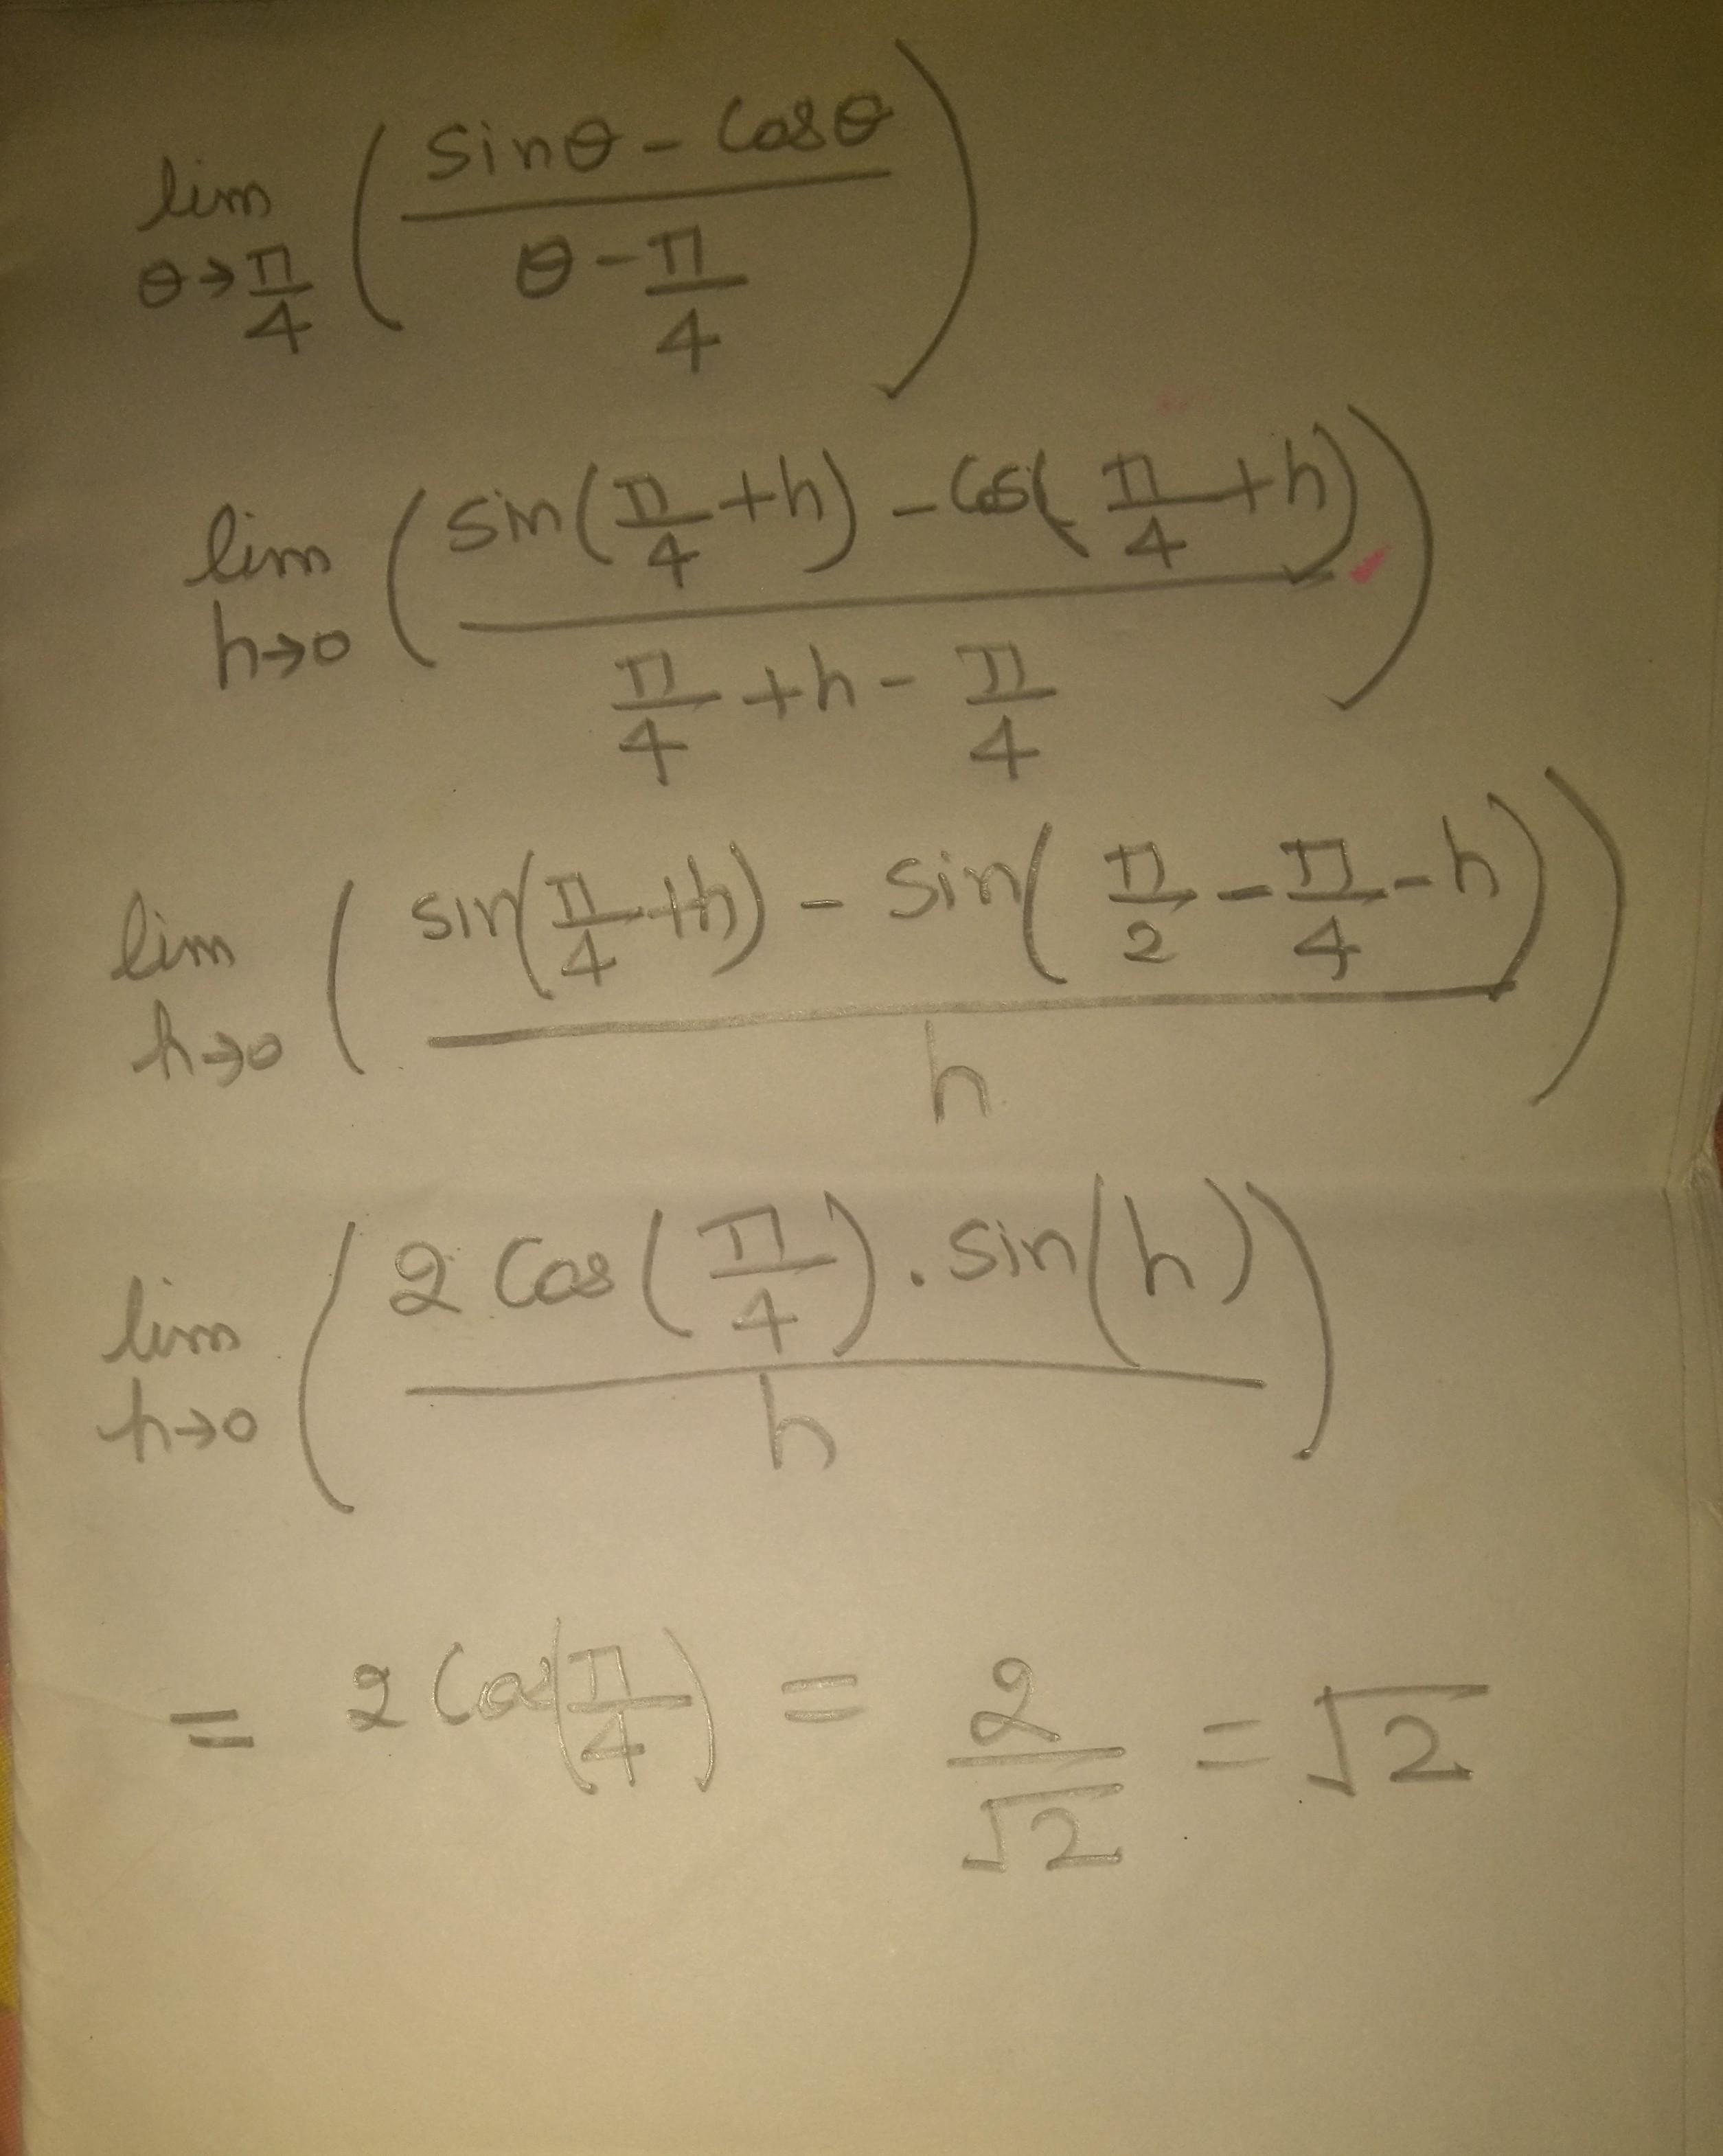 lim θ→π/4 ( (sinθ - Cosθ) / (θ - π/4) )
lim h→0 ( (sin(π/4 + h) - Cos(π/4 + h)) / (π/4 + h - π/4) )
lim h→0 ( (sin(π/4 + h) - sin(π/2 - π/4 - h)) / h )
lim h→0 ( (2 Cos(π/4) . sin(h)) / h )
= 2 Cos(π/4) = 2/√2 = √2